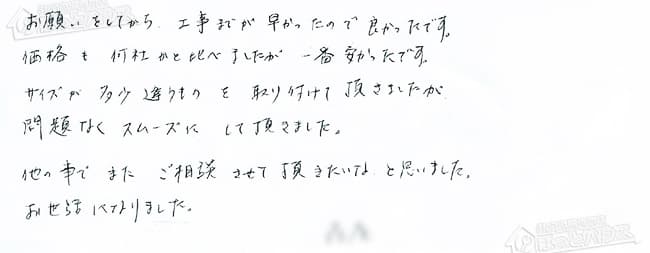 お願いをしてから、工事までが早かったので良かったです。
価格も何社かと比べましたが一番安かったです。
サイズが多少違うものを取り付けて頂きましたが
問題なくスムーズにして頂きました。
他の事でまたご相談させて頂きたいなと思いました。
お世話になりました。